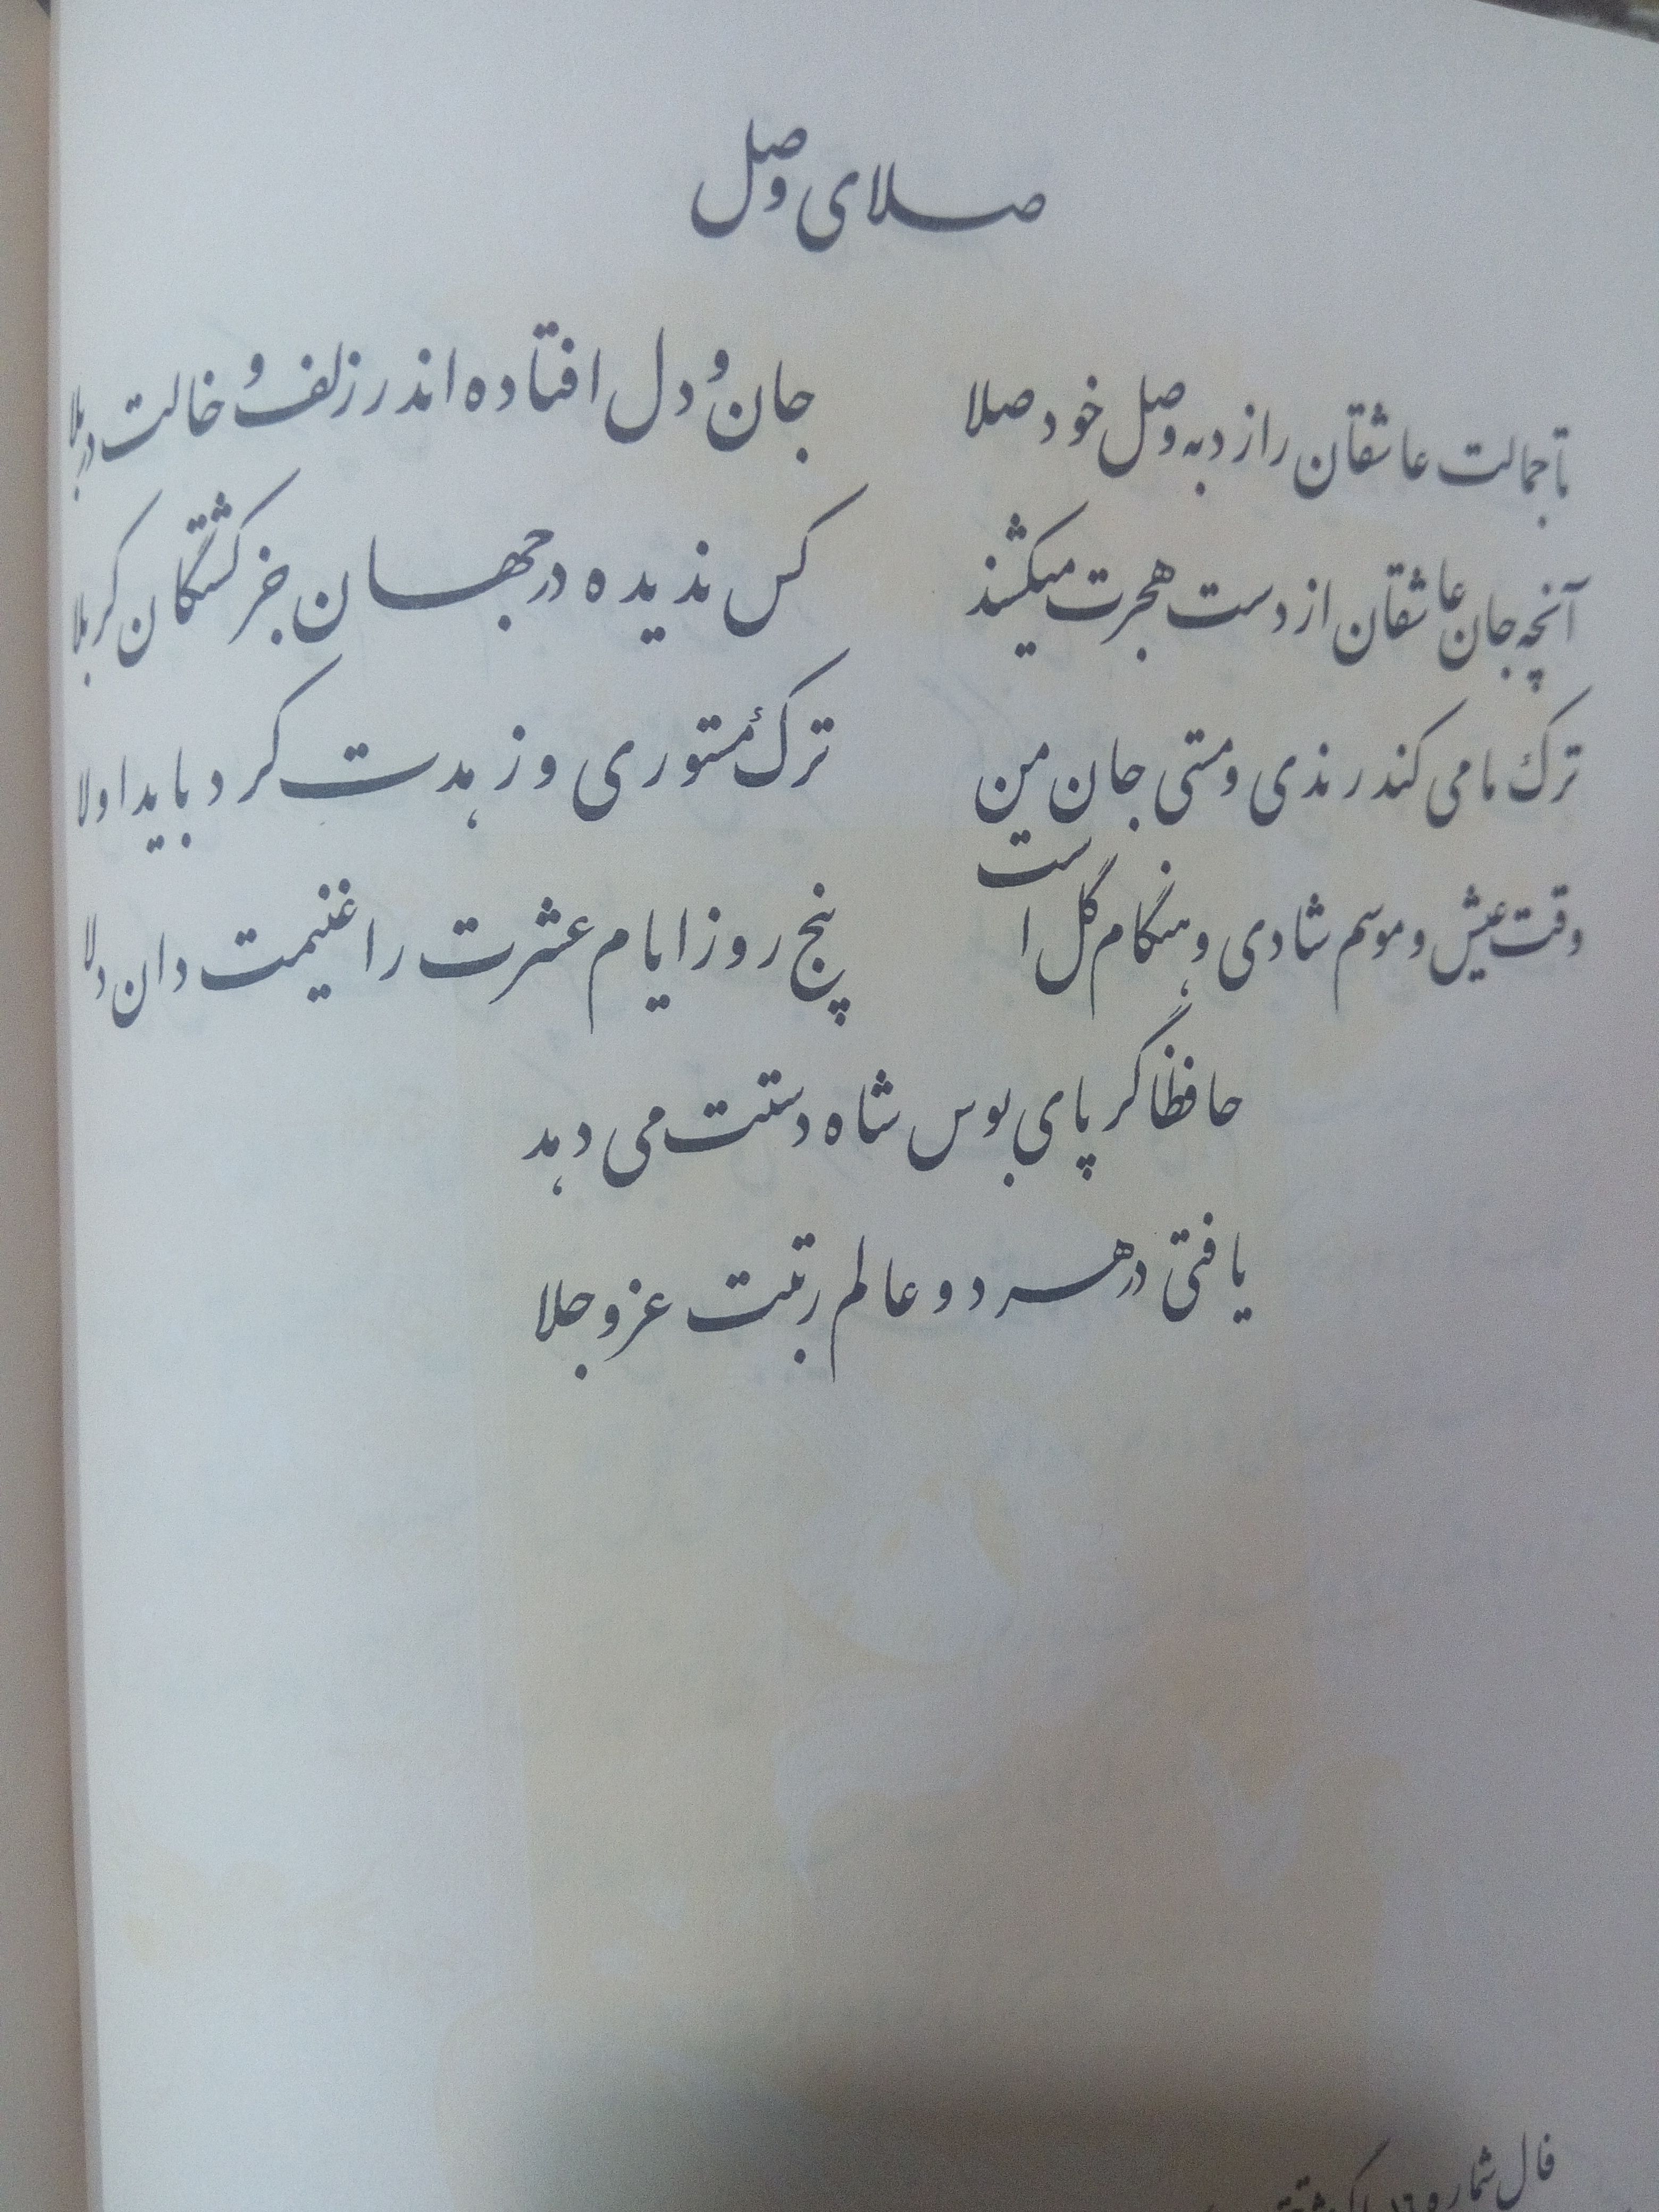 صلای وصل
تا جمالت عاشقان را زد به وصل خود صلا جان و دل افتاده اند در زلف و خالت در بلا
آنچه جان عاشقان از دست هجرت میکشند کس ندیده در جهان جز کشتگان کربلا
ترک ما می کند رندی و مستی جان من ترک مستوری و زهدت کرد باید اولا
وقت عیش و موسم شادی و هنگام گل است پنج روز ایام عشرت را غنیمت دان دلا
حافظا گر پای بوس شاه دستت می دهد
یافتی در هر دو عالم رتبت عز و جلا
فال شماره ۱۶